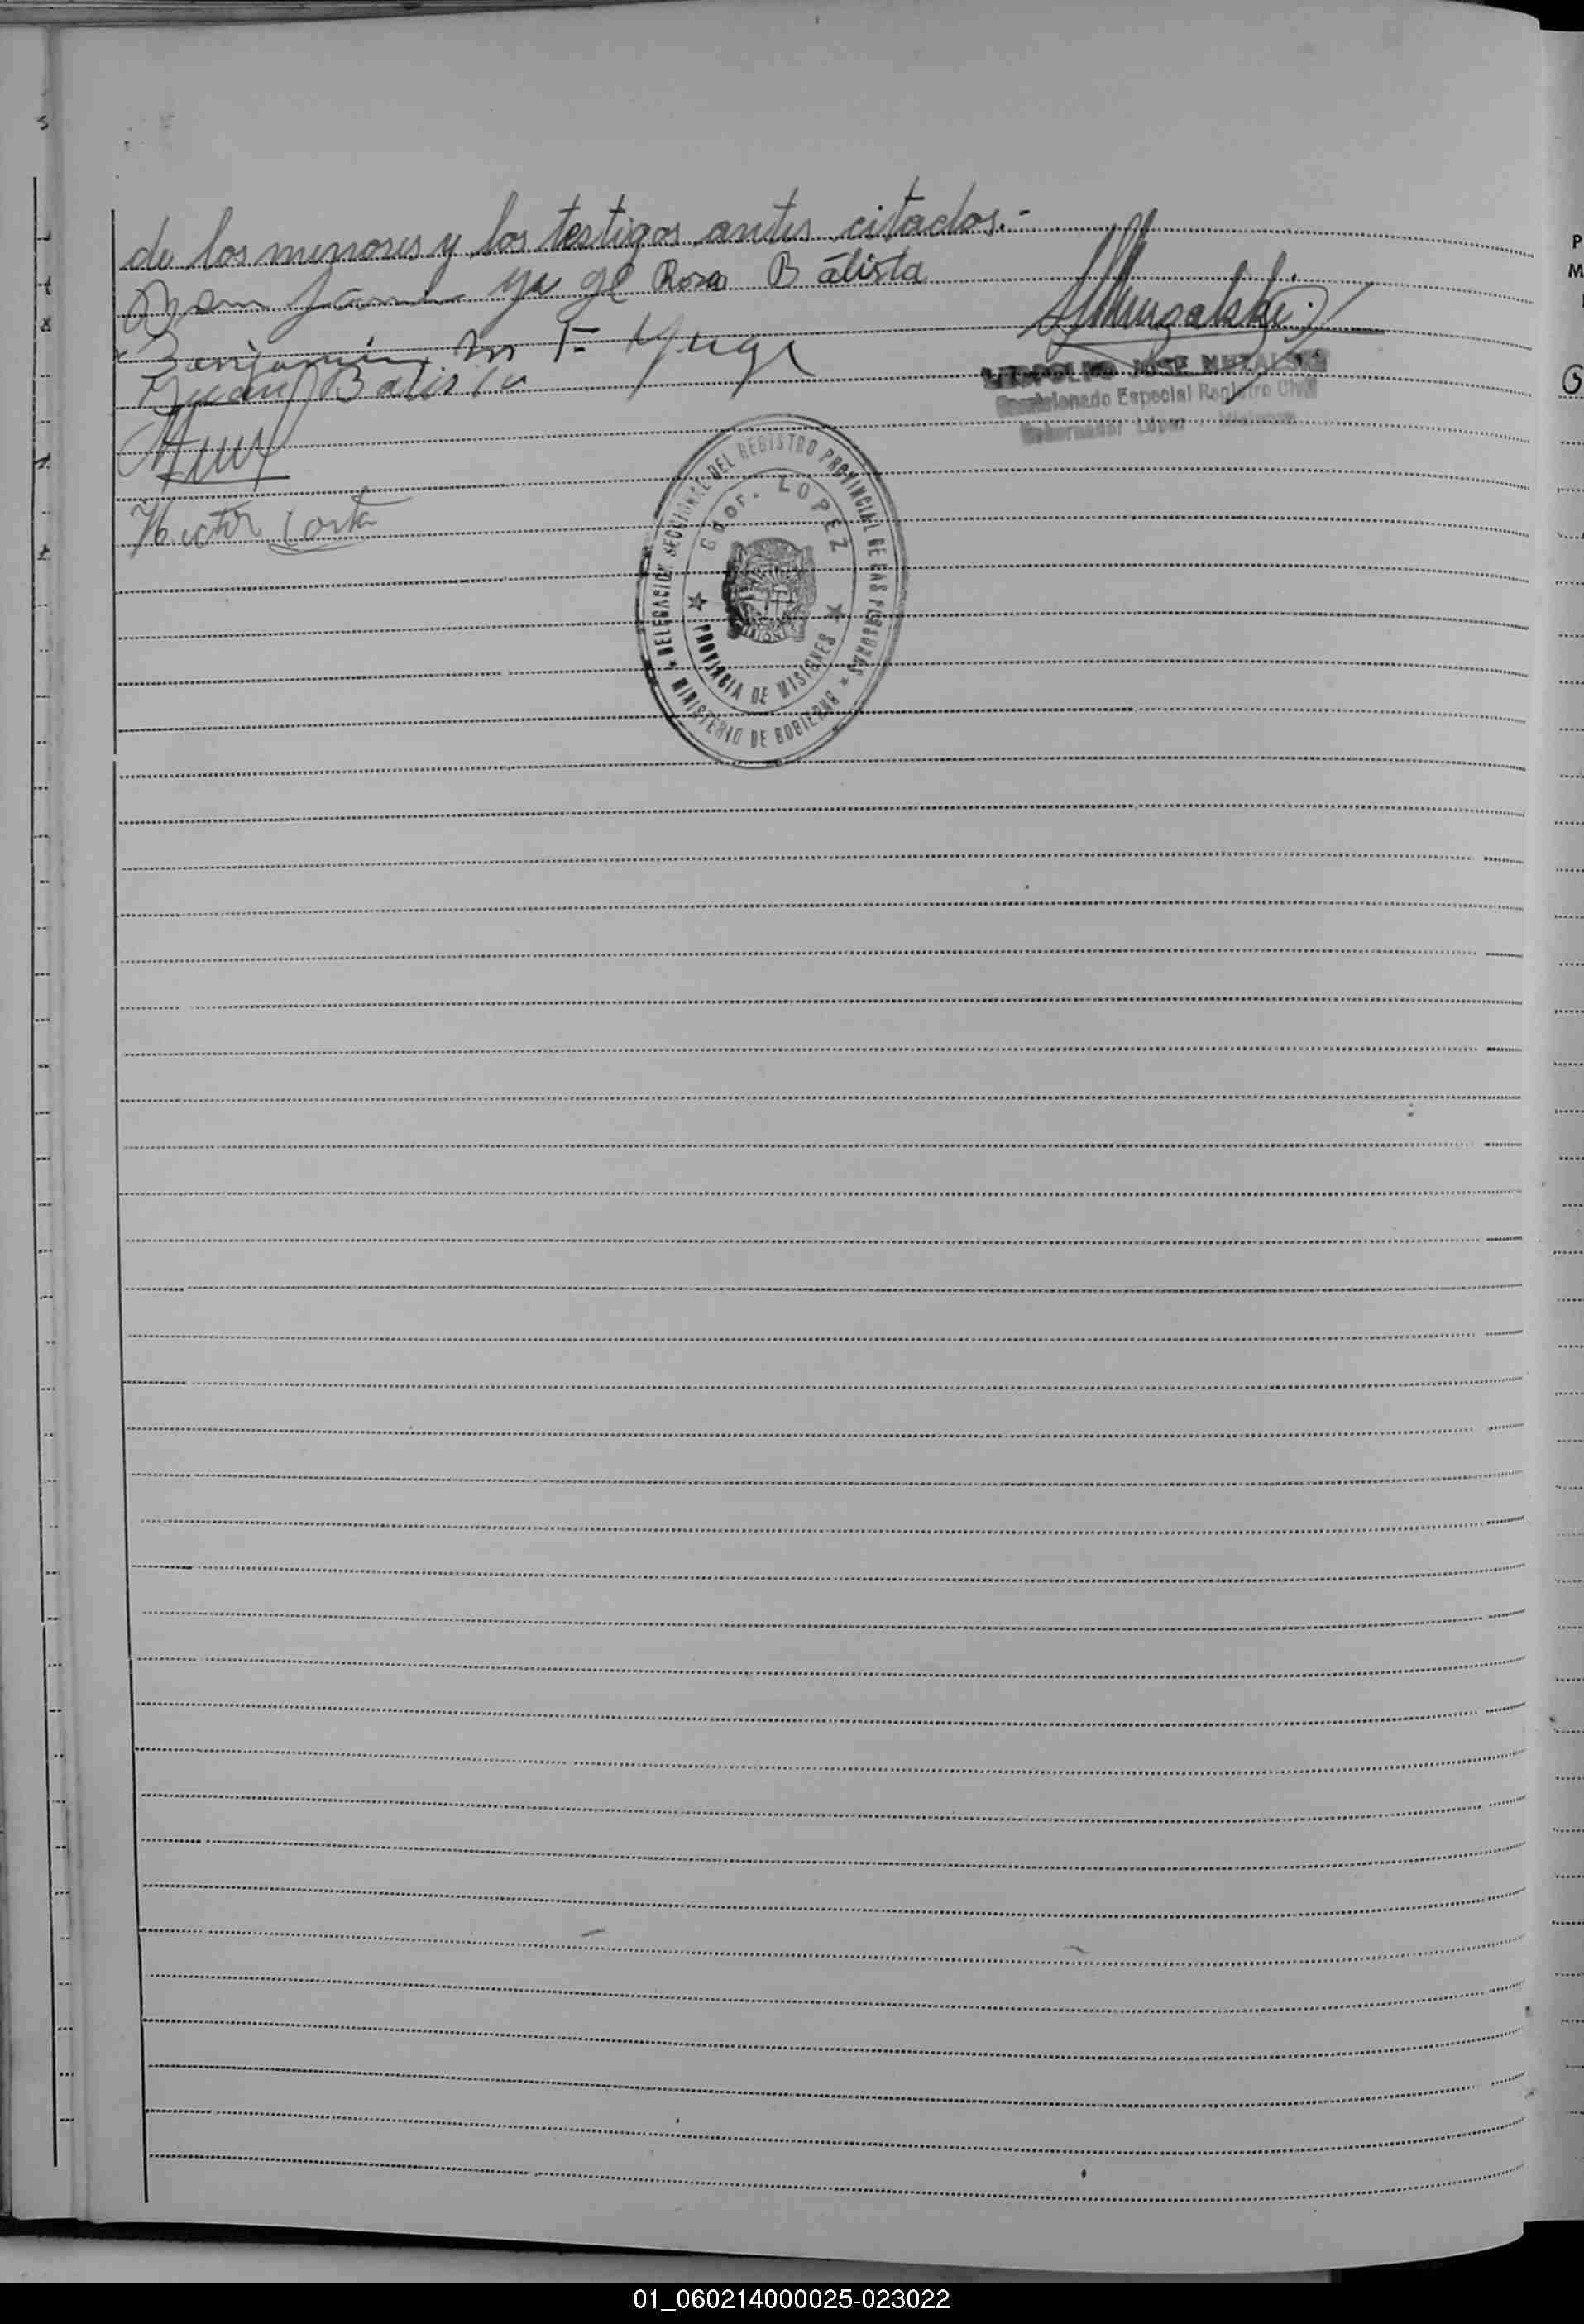 de los menores y los testigos antes citados.-
Rosa Bálista
Benjamin M F. Yuge
Juan Batista
Hector Costa
LEOPOLDO JOSE MUZALSKI
Comisionado Especial Registro Civil
Gobernador López - Misiones
DELEGACIÓN SECCIONAL DEL REGISTRO PROVINCIAL DE LAS PERSONAS
Gdor. LOPEZ
PROVINCIA DE MISIONES
MINISTERIO DE GOBIERNO
P
M
01_060214000025-023022